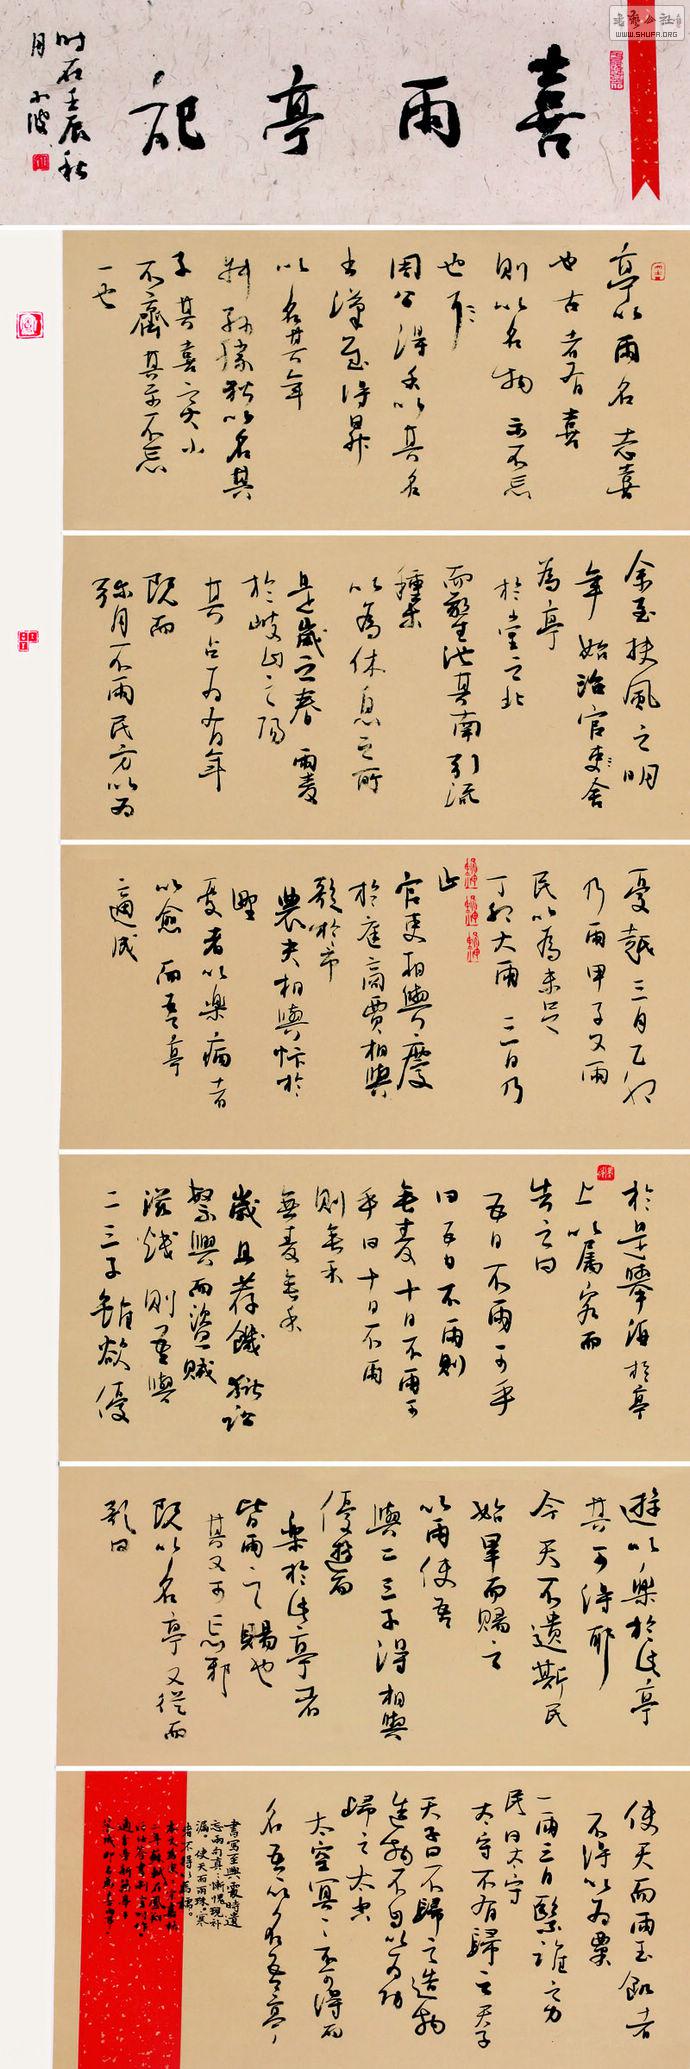 喜雨亭記
時在壬辰秋
月小波
WWW.SHUFA.ORG
亭以雨名志喜
也古者有喜
則以名物示不忘
也
周公得禾以其名
書漢武得鼎
以名其年
叔孫勝狄以名其
子其喜之大小
不齊其示不忘
一也
余至扶風之明
年始治官舍
為亭
於堂之北
而鑿池其南引流
種樹
以為休息之所
是歲之春雨麥
於岐山之陽
其占為有年
既而
彌月不雨民方以為
憂越三月乙卯
乃雨甲子又雨
民以為未足
丁卯大雨三日乃
止
官吏相與慶
於庭商賈相與
歌於市
農夫相與忭於
野
憂者以樂病者
以愈而吾亭
適成
於是舉酒於亭
上以屬客而
告之曰
五日不雨可乎
曰五日不雨則
無麥十日不雨可
乎曰十日不雨
則無禾
無麥無禾
歲且荐饑獄訟
繁興而盜賊
滋熾則吾與
二三子雖欲優
遊以樂於此亭
其可得耶
今天不遺斯民
始旱而賜之
以雨使吾
與二三子得相與
優遊而
樂於此亭者
皆雨之賜也
其又可忘邪
既以名亭又從而
歌曰
使天而雨玉飢者
不得以為粟
一雨三日繄誰之力
民曰太守
太守不有歸之天子
天子曰不歸之造物
造物不自以為功
歸之太空
太空冥冥不可得而
名吾以名吾亭
書寫至興處時遺
忘兩句真慚愧現補
漏。使天而雨珠。寒
者不得以為襦。